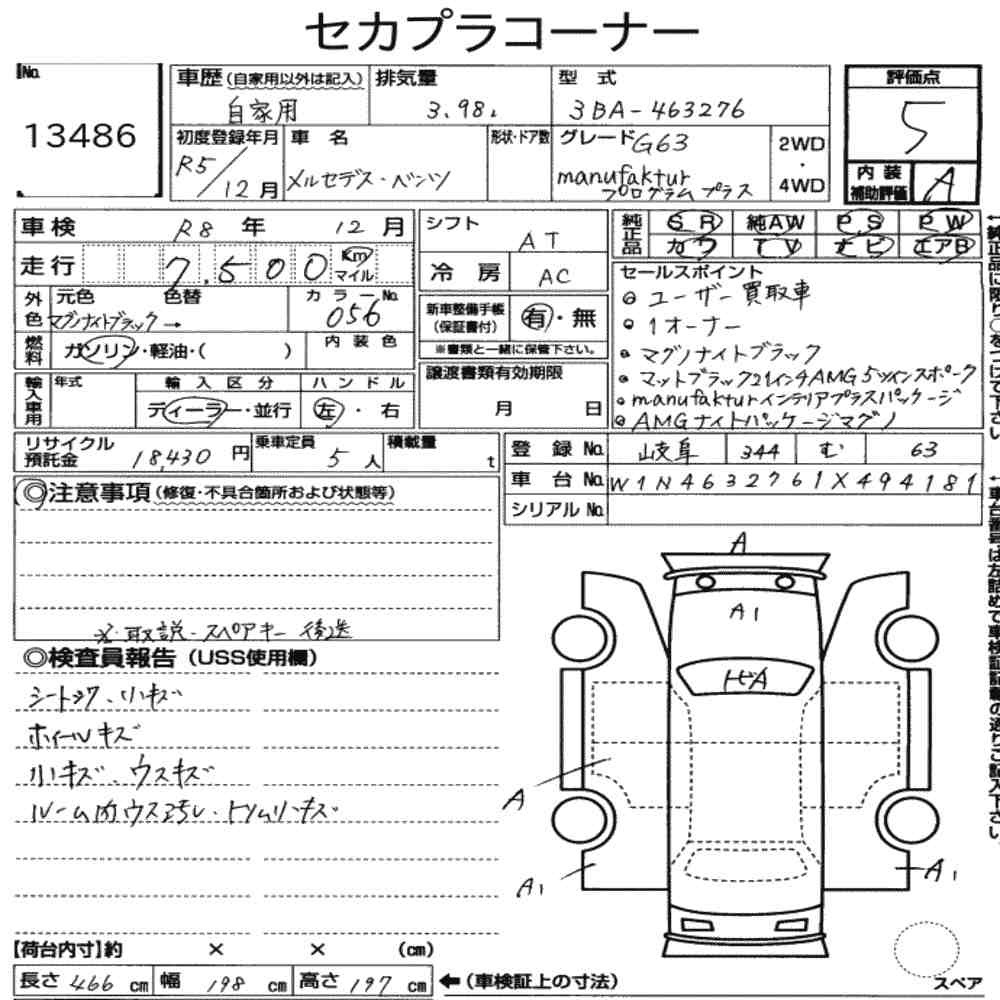 セカプラコーナー
No.
13486
車歴(自家用以外は記入)
自家用
排気量
3.98L
型式
3BA-463276
評価点
5
初度登録年月
R5/12月
車名
メルセデス・ベンツ
形状・ドア数
グレード G63
manufaktur
プログラムプラス
2WD
・
4WD
内装
補助評価
A
車検 R8年 12月
走行 7,500 Km
マイル
シフト
AT
冷房
AC
純正品
SR 純AW PS PW
カワ TV ナビ エアB
外色
元色 色替
マグノナイトブラック→
カラーNo.
056
新車整備手帳
(保証書付)
有・無
※書類と一緒に保管下さい。
燃料
ガソリン・軽油・( )
内装色
セールスポイント
◎ユーザー買取車
◎1オーナー
●マグノナイトブラック
●マットブラック21インチAMG5ツインスポーク
●manufakturインテリアプラスパッケージ
◎AMGナイトパッケージマグノ
輸入車用
年式
輸入区分
ディーラー・並行
ハンドル
左・右
譲渡書類有効期限
月 日
リサイクル
預託金 18,430円
乗車定員
5人
積載量
t
登録No. 岐阜 344 む 63
車台No. W1N4632761X494181
シリアルNo.
◎注意事項(修復・不具合箇所および状態等)
※取説・スペアキー後送
◎検査員報告(USS使用欄)
シートシワ、小キズ
ホイールキズ
小キズ、ウスキズ
ルーム内ウス汚レ・トリム小キズ
A
A1
トビA
A
A1
A1
スペア
【荷台内寸】約 × × (cm)
長さ 466 cm 幅 198 cm 高さ 197 cm
←(車検証上の寸法)
←純正品に限り○をつけて下さい
←車台番号は左詰めで車検証記載の通りご記入下さい。